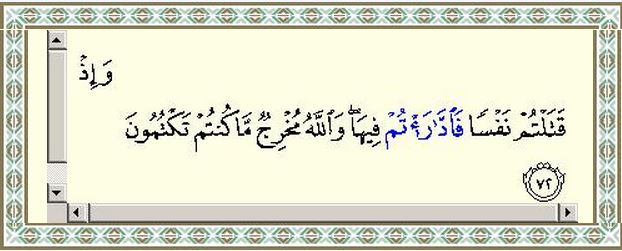 وَإِذْ
قَتَلْتُمْ نَفْسًا فَٱدَّٰرَْٰٔتُمْ فِيهَا ۖ وَٱللَّهُ مُخْرِجٌ مَّا كُنتُمْ تَكْتُمُونَ
٧٢